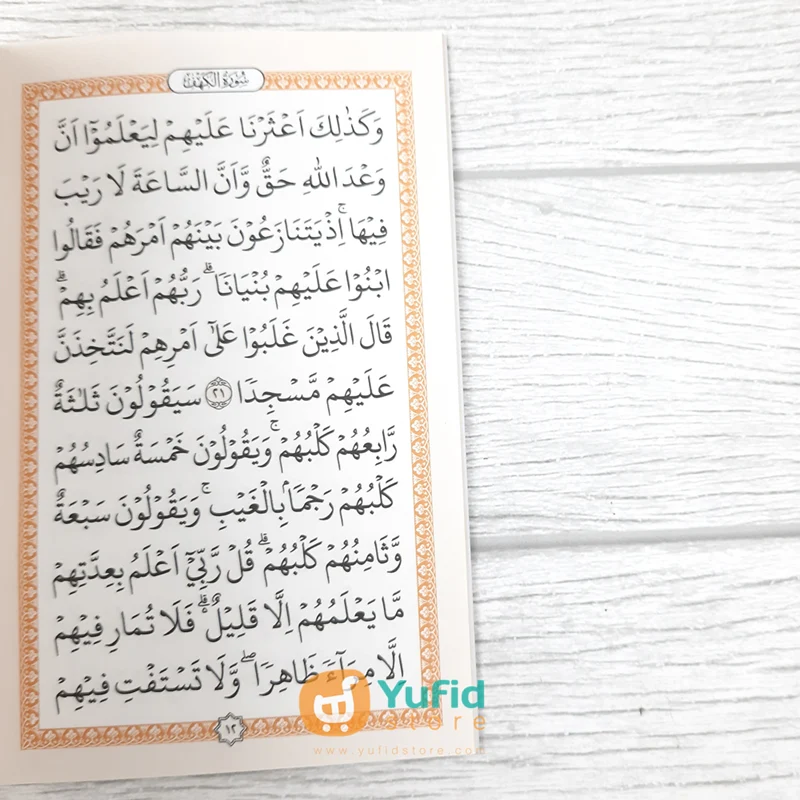 سُورَةُ الْكَهْفِ
وَكَذٰلِكَ اَعْثَرْنَا عَلَيْهِمْ لِيَعْلَمُوْٓا اَنَّ
وَعْدَ اللّٰهِ حَقٌّ وَّاَنَّ السَّاعَةَ لَا رَيْبَ
فِيْهَا ۚ اِذْ يَتَنَازَعُوْنَ بَيْنَهُمْ اَمْرَهُمْ فَقَالُوا
ابْنُوْا عَلَيْهِمْ بُنْيَانًا ۗ رَبُّهُمْ اَعْلَمُ بِهِمْ ۗ
قَالَ الَّذِيْنَ غَلَبُوْا عَلٰٓى اَمْرِهِمْ لَنَتَّخِذَنَّ
عَلَيْهِمْ مَّسْجِدًا ٢١ سَيَقُوْلُوْنَ ثَلٰثَةٌ
رَّابِعُهُمْ كَلْبُهُمْ ۚ وَيَقُوْلُوْنَ خَمْسَةٌ سَادِسُهُمْ
كَلْبُهُمْ رَجْمًاۢ بِالْغَيْبِ ۚ وَيَقُوْلُوْنَ سَبْعَةٌ
وَّثَامِنُهُمْ كَلْبُهُمْ ۗ قُلْ رَّبِّيْٓ اَعْلَمُ بِعِدَّتِهِمْ
مَّا يَعْلَمُهُمْ اِلَّا قَلِيْلٌ ۗ فَلَا تُمَارِ فِيْهِمْ
اِلَّا مِرَاۤءً ظَاهِرًا ۖ وَّلَا تَسْتَفْتِ فِيْهِمْ
١٢
Yufid
store
www.yufidstore.com